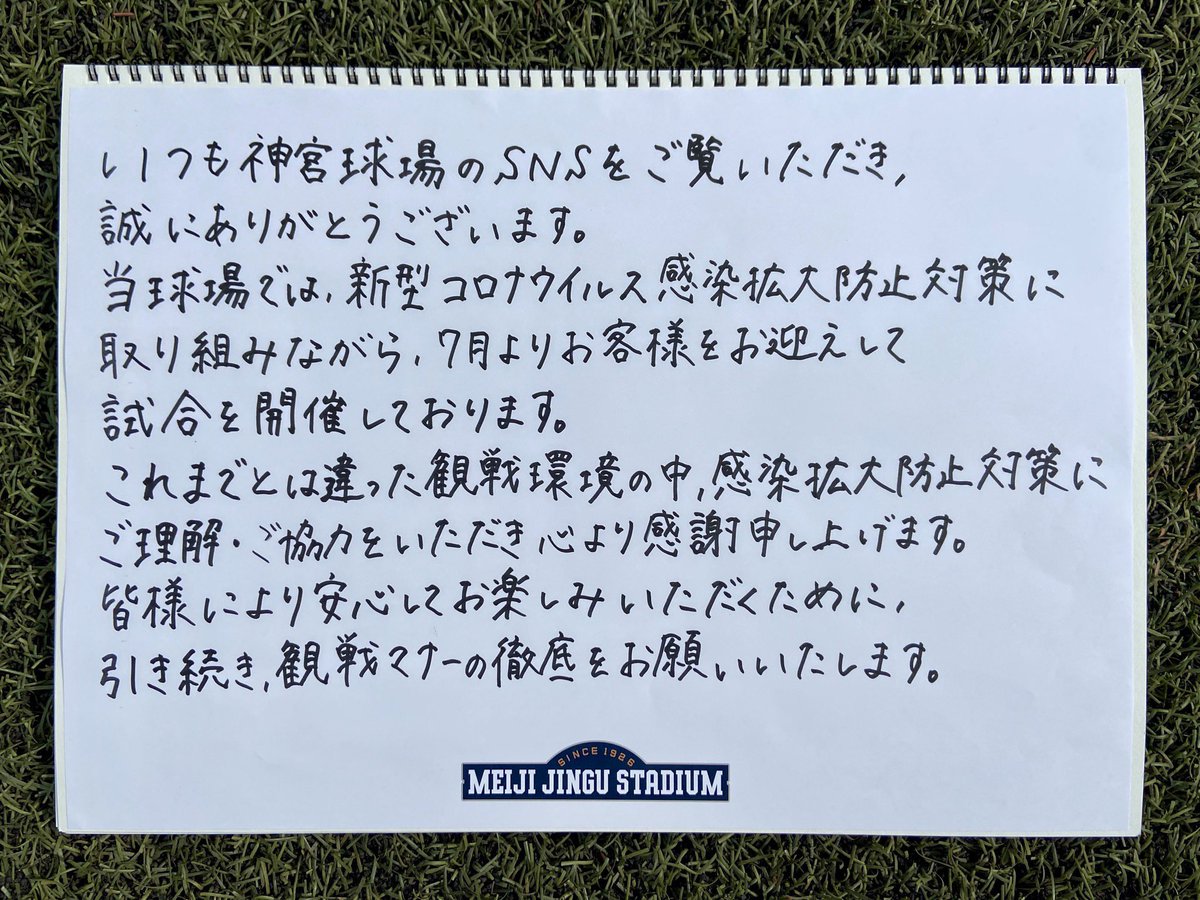 いつも神宮球場のSNSをご覧いただき,
誠にありがとうございます。
当球場では,新型コロナウイルス感染拡大防止対策に
取り組みながら,7月よりお客様をお迎えして
試合を開催しております。
これまでとは違った観戦環境の中,感染拡大防止対策に
ご理解・ご協力をいただき心より感謝申し上げます。
皆様により安心してお楽しみいただくために,
引き続き,観戦マナーの徹底をお願いいたします。
SINCE 1926
MEIJI JINGU STADIUM